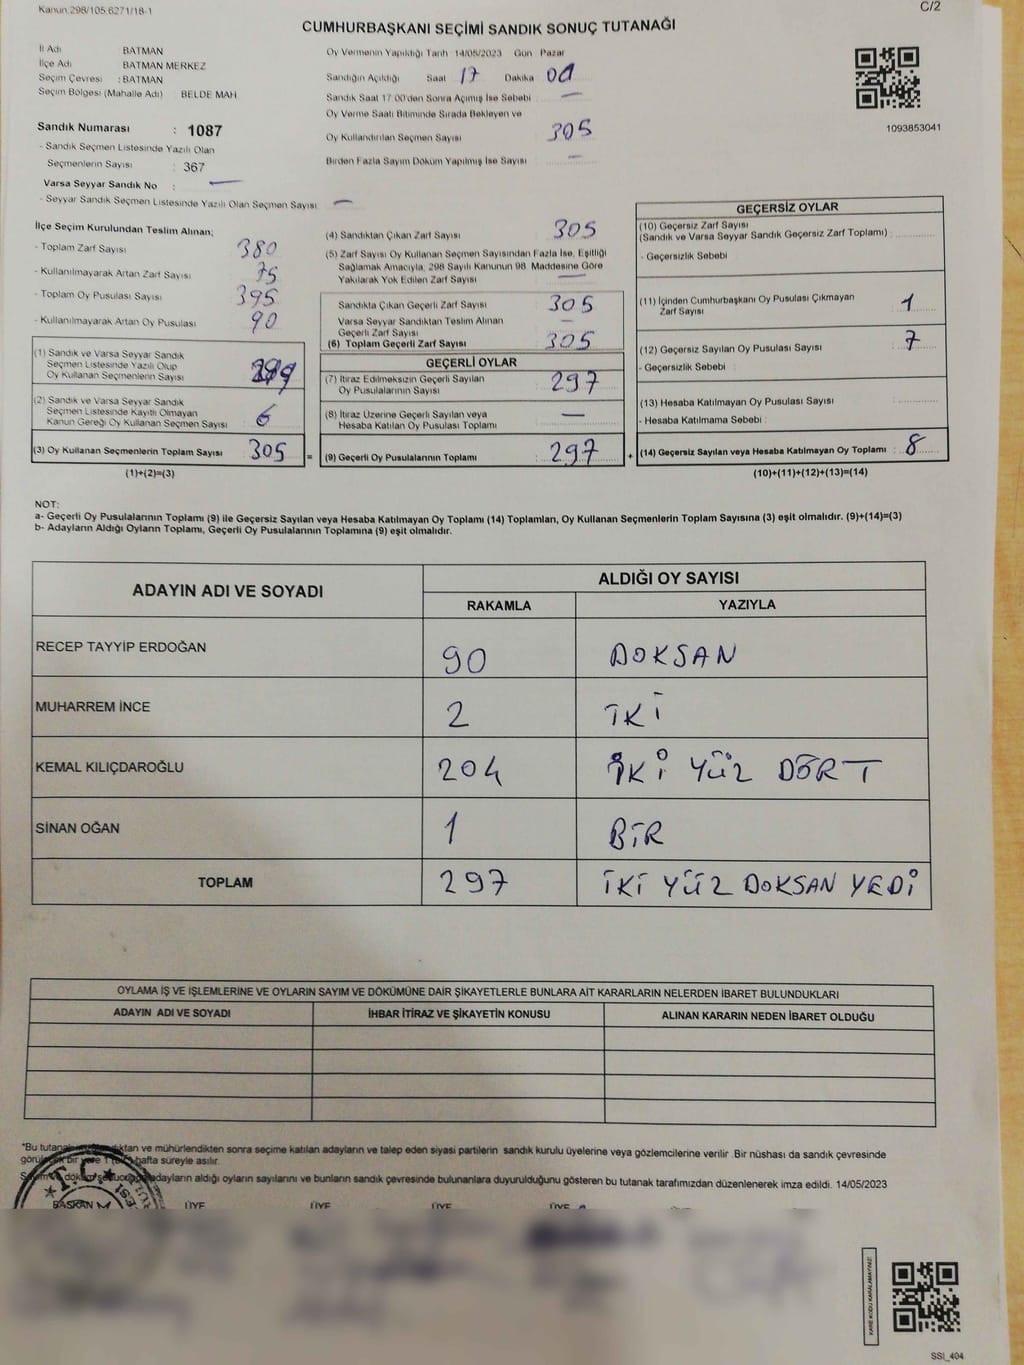 Kanun.298/105.6271/18-1
C/2
CUMHURBAŞKANI SEÇİMİ SANDIK SONUÇ TUTANAĞI
İl Adı BATMAN
İlçe Adı BATMAN MERKEZ
Seçim Çevresi : BATMAN
Seçim Bölgesi (Mahalle Adı) : BELDE MAH.
Sandık Numarası : 1087
- Sandık Seçmen Listesinde Yazılı Olan
Seçmenlerin Sayısı : 367
Varsa Seyyar Sandık No : —
- Seyyar Sandık Seçmen Listesinde Yazılı Olan Seçmen Sayısı : —
Oy Vermenin Yapıldığı Tarih 14/05/2023 Gün Pazar
Sandığın Açıldığı Saat 17 Dakika 00
Sandık Saat 17.00'den Sonra Açılmış İse Sebebi : —
Oy Verme Saati Bitiminde Sırada Bekleyen ve
Oy Kullandırılan Seçmen Sayısı : 305
Birden Fazla Sayım Döküm Yapılmış İse Sayısı : —
1093853041
İlçe Seçim Kurulundan Teslim Alınan;
- Toplam Zarf Sayısı : 380
- Kullanılmayarak Artan Zarf Sayısı : 75
- Toplam Oy Pusulası Sayısı : 395
- Kullanılmayarak Artan Oy Pusulası : 90
(1) Sandık ve Varsa Seyyar Sandık
Seçmen Listesinde Yazılı Olup
Oy Kullanan Seçmenlerin Sayısı :
(2) Sandık ve Varsa Seyyar Sandık
Seçmen Listesinde Kayıtlı Olmayan
Kanun Gereği Oy Kullanan Seçmen Sayısı : 6
(3) Oy Kullanan Seçmenlerin Toplam Sayısı : 305
(1)+(2)=(3)
(4) Sandıktan Çıkan Zarf Sayısı : 305
(5) Zarf Sayısı Oy Kullanan Seçmen Sayısından Fazla İse, Eşitliği
Sağlamak Amacıyla, 298 Sayılı Kanunun 98. Maddesine Göre
Yakılarak Yok Edilen Zarf Sayısı : —
Sandıkta Çıkan Geçerli Zarf Sayısı : 305
Varsa Seyyar Sandıktan Teslim Alınan
Geçerli Zarf Sayısı : —
(6) Toplam Geçerli Zarf Sayısı : 305
GEÇERLİ OYLAR
(7) İtiraz Edilmeksizin Geçerli Sayılan
Oy Pusulalarının Sayısı : 297
(8) İtiraz Üzerine Geçerli Sayılan veya
Hesaba Katılan Oy Pusulası Toplamı : —
= (9) Geçerli Oy Pusulalarının Toplamı : 297 +
GEÇERSİZ OYLAR
(10) Geçersiz Zarf Sayısı
(Sandık ve Varsa Seyyar Sandık Geçersiz Zarf Toplamı) :
- Geçersizlik Sebebi :
(11) İçinden Cumhurbaşkanı Oy Pusulası Çıkmayan
Zarf Sayısı : 1
(12) Geçersiz Sayılan Oy Pusulası Sayısı : 7
- Geçersizlik Sebebi :
(13) Hesaba Katılmayan Oy Pusulası Sayısı :
- Hesaba Katılmama Sebebi :
(14) Geçersiz Sayılan veya Hesaba Katılmayan Oy Toplamı : 8
(10)+(11)+(12)+(13)=(14)
NOT:
a- Geçerli Oy Pusulalarının Toplamı (9) ile Geçersiz Sayılan veya Hesaba Katılmayan Oy Toplamı (14) Toplamları, Oy Kullanan Seçmenlerin Toplam Sayısına (3) eşit olmalıdır. (9)+(14)=(3)
b- Adayların Aldığı Oyların Toplamı, Geçerli Oy Pusulalarının Toplamına (9) eşit olmalıdır.
ADAYIN ADI VE SOYADI ALDIĞI OY SAYISI
RAKAMLA YAZIYLA
RECEP TAYYİP ERDOĞAN 90 DOKSAN
MUHARREM İNCE 2 İKİ
KEMAL KILIÇDAROĞLU 204 İKİ YÜZ DÖRT
SİNAN OĞAN 1 BİR
TOPLAM 297 İKİ YÜZ DOKSAN YEDİ
OYLAMA İŞ VE İŞLEMLERİNE VE OYLARIN SAYIM VE DÖKÜMÜNE DAİR ŞİKAYETLERLE BUNLARA AİT KARARLARIN NELERDEN İBARET BULUNDUKLARI
ADAYIN ADI VE SOYADI İHBAR İTİRAZ VE ŞİKAYETİN KONUSU ALINAN KARARIN NEDEN İBARET OLDUĞU
*Bu ve mühürlendikten sonra seçime katılan adayların ve talep eden siyasi partilerin sandık kurulu üyelerine veya gözlemcilerine verilir .Bir nüshası da sandık çevresinde
hafta süreyle asılır.
adayların aldığı oyların sayılarını ve bunların sandık çevresinde bulunanlara duyurulduğunu gösteren bu tutanak tarafımızdan düzenlenerek imza edildi. 14/05/2023
BAŞKAN ÜYE ÜYE ÜYE ÜYE
SSI_404